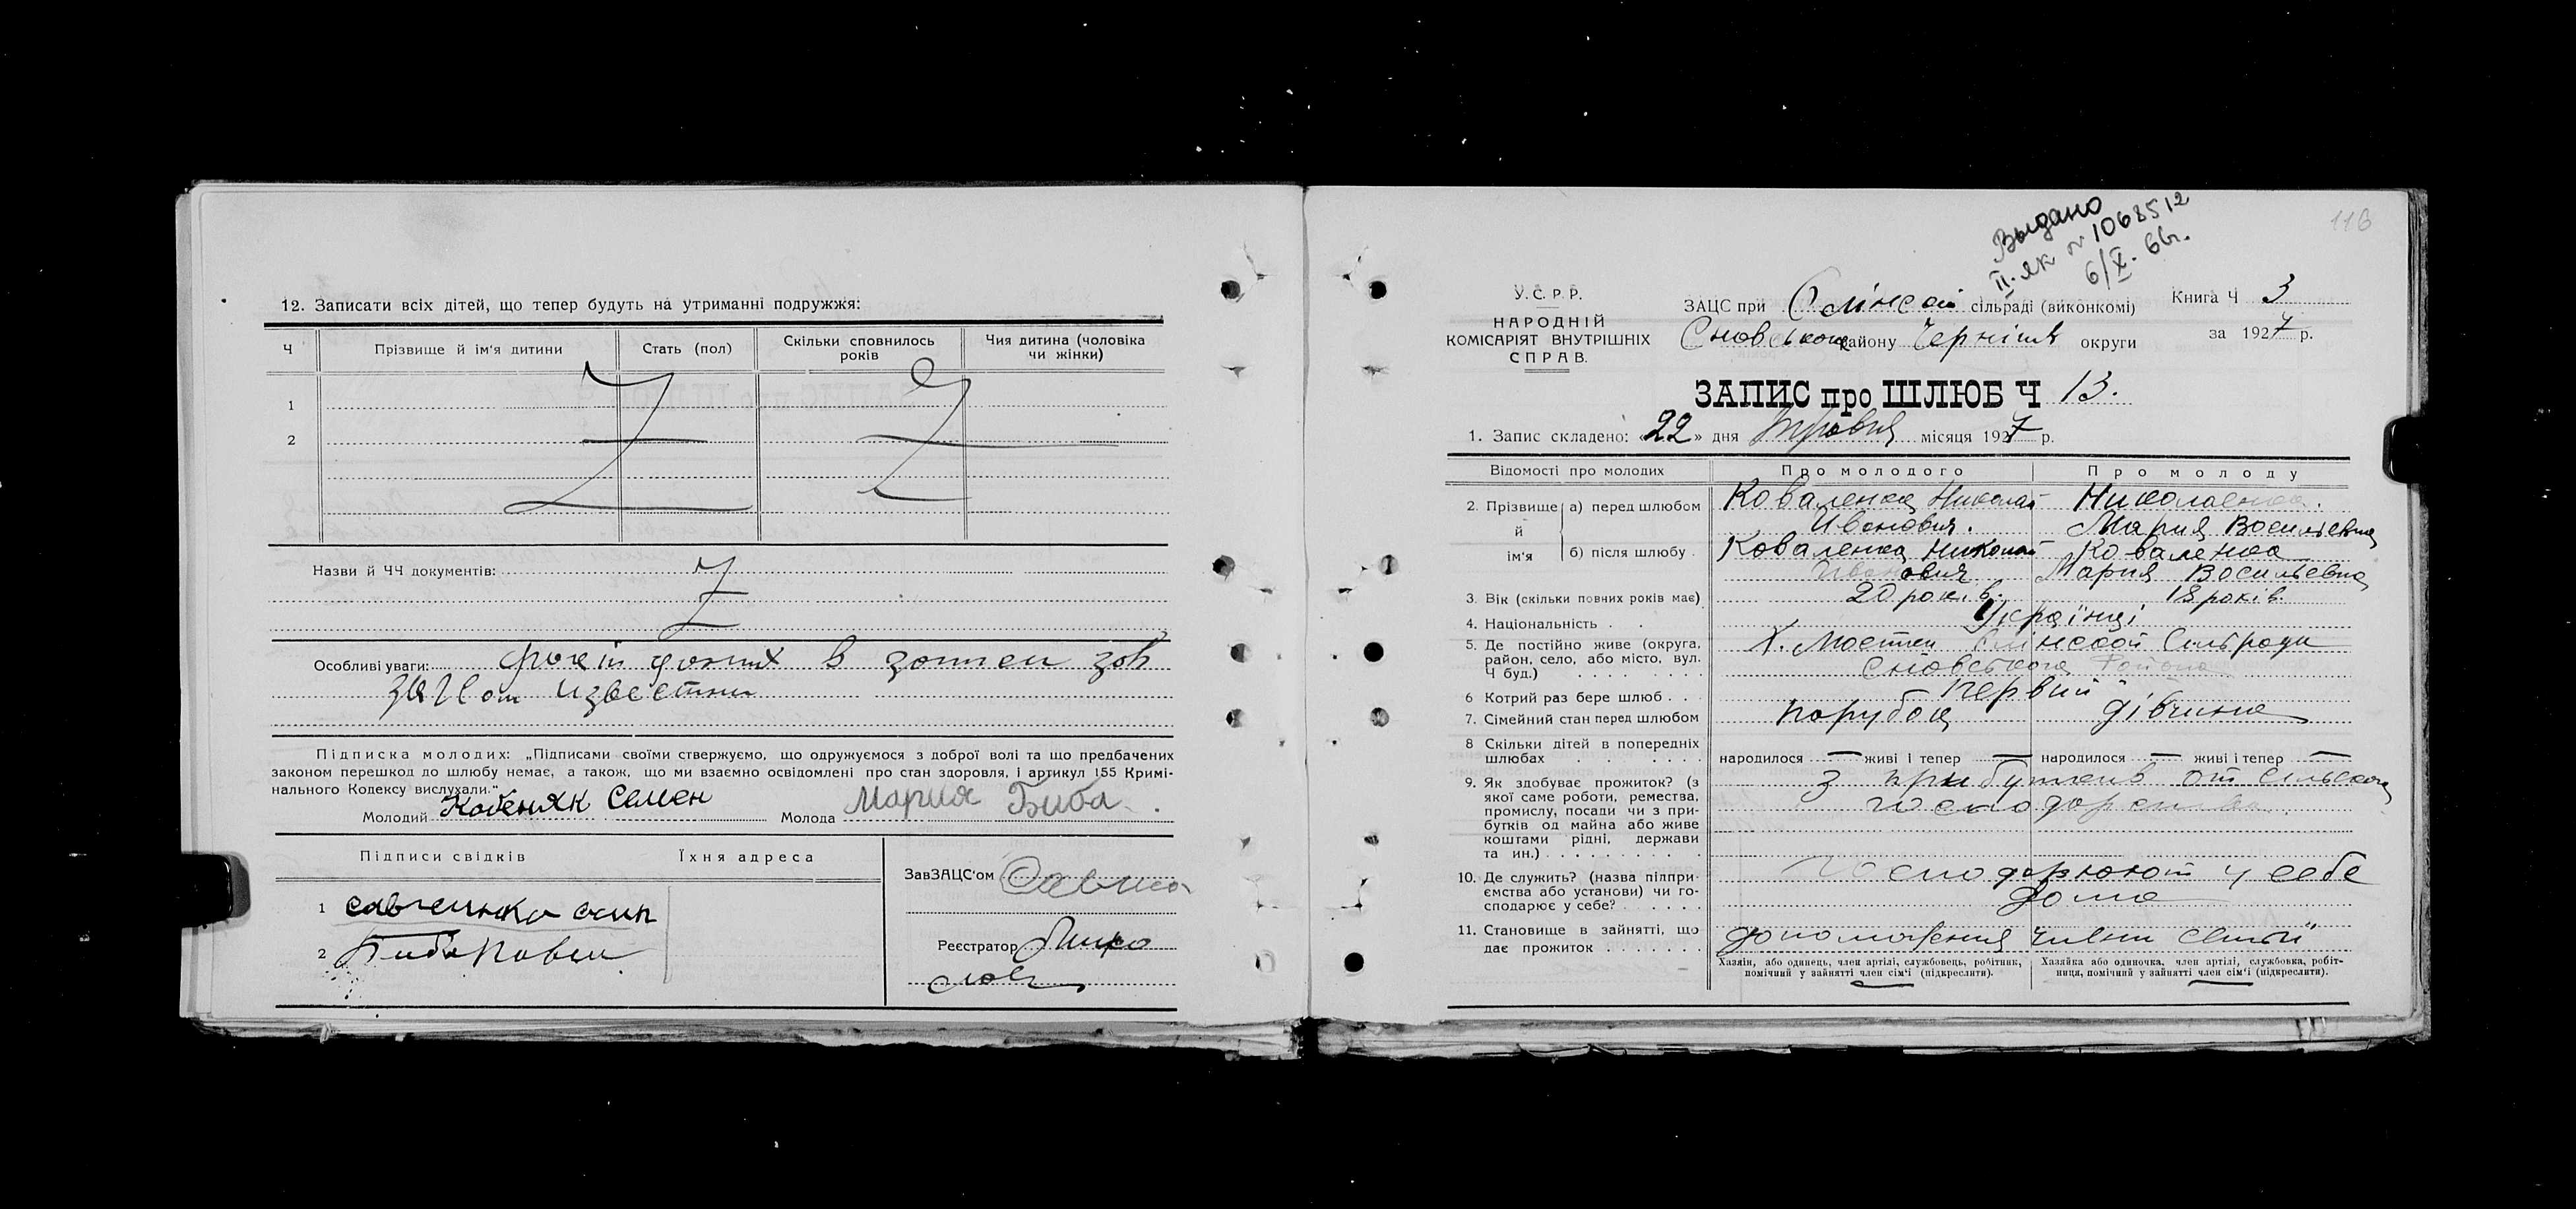 12. Записати всіх дітей, що тепер будуть на утриманні подружжя:
Ч
Прізвище й ім'я дитини
Стать (пол)
Скільки сповнилось років
Чия дитина (чоловіка чи жінки)
1
2
Назви й ЧЧ документів:
Особливі уваги:
известны
Підписка молодих: „Підписами своїми стверджуємо, що одружуємося з доброї волі та що предбачених
законом перешкод до шлюбу немає, а також, що ми взаємно освідомлені про стан здоровля, і артикул 155 Кримі-
нального Кодексу вислухали."
Молодий Кобеняк Семен Молода Мария Биба
Підписи свідків Їхня адреса
ЗавЗАЦС'ом
1 савченко
2 Биба Павел
Реєстратор
Выдано
II-як № 1068512
6/X-66г.
116
У.С.Р.Р.
НАРОДНІЙ
КОМІСАРІЯТ ВНУТРІШНІХ
СПРАВ.
ЗАЦС при сільраді (виконкомі)
Сновського району Черніг округи
Книга Ч 3
за 1927 р.
ЗАПИС про ШЛЮБ Ч 13.
1. Запис складено: «22» дня Травня місяця 1927 р.
Відомості про молодих Про молодого Про молоду
2. Прізвище й ім'я
а) перед шлюбом Коваленко Николай Николаенко
Иванович. Мария Васильевна
б) після шлюбу Коваленко Николай Коваленко
Иванович Мария Васильевна
3. Вік (скільки повних років має) 20 років. 18 років
4. Національність Українці
5. Де постійно живе (округа, район, село, або місто, вул. Ч буд.) Х. Мостки Сільради
Сновського Района
6 Котрий раз бере шлюб Первий
7. Сімейний стан перед шлюбом парубок дівчина
8 Скільки дітей в попередніх шлюбах народилося — живі і тепер — народилося — живі і тепер —
9. Як здобуває прожиток? (з якої саме роботи, ремества, промислу, посади чи з прибутків од майна або живе коштами рідні, держави та ин.) З прибутків от сільского
господарства
10. Де служить? (назва підприємства або установи) чи господарює у себе? Господарюют у себе
дома
11. Становище в зайнятті, що дає прожиток члени семьи
Хазяін, або одинець, член артілі, службовець, робітник, помічний у зайнятті член сім'ї (підкреслити).
Хазяйка або одиночка, член артілі, службовка, робітниця, помічний у зайнятті член сім'ї (підкреслити).